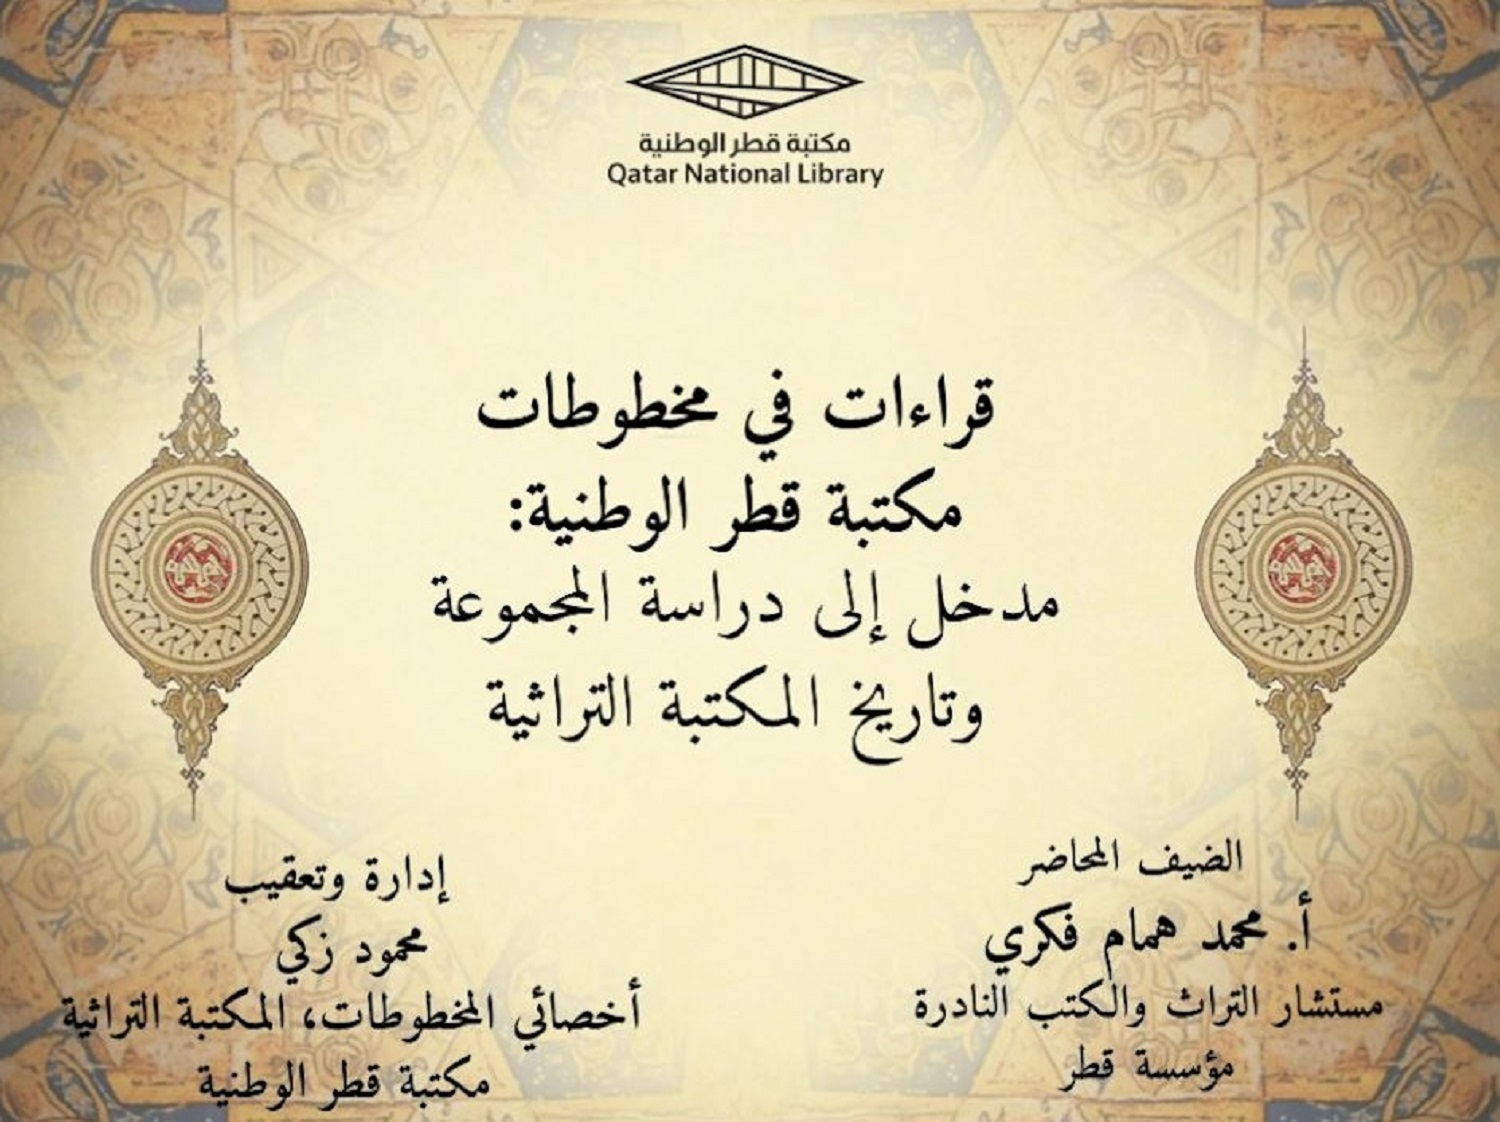 مكتبة قطر الوطنية
Qatar National Library
قراءات في مخطوطات
مكتبة قطر الوطنية:
مدخل إلى دراسة المجموعة
وتاريخ المكتبة التراثية
الضيف المحاضر
أ. محمد همام فكري
مستشار التراث والكتب النادرة
مؤسسة قطر
إدارة وتعقيب
محمود زكي
أخصائي المخطوطات، المكتبة التراثية
مكتبة قطر الوطنية